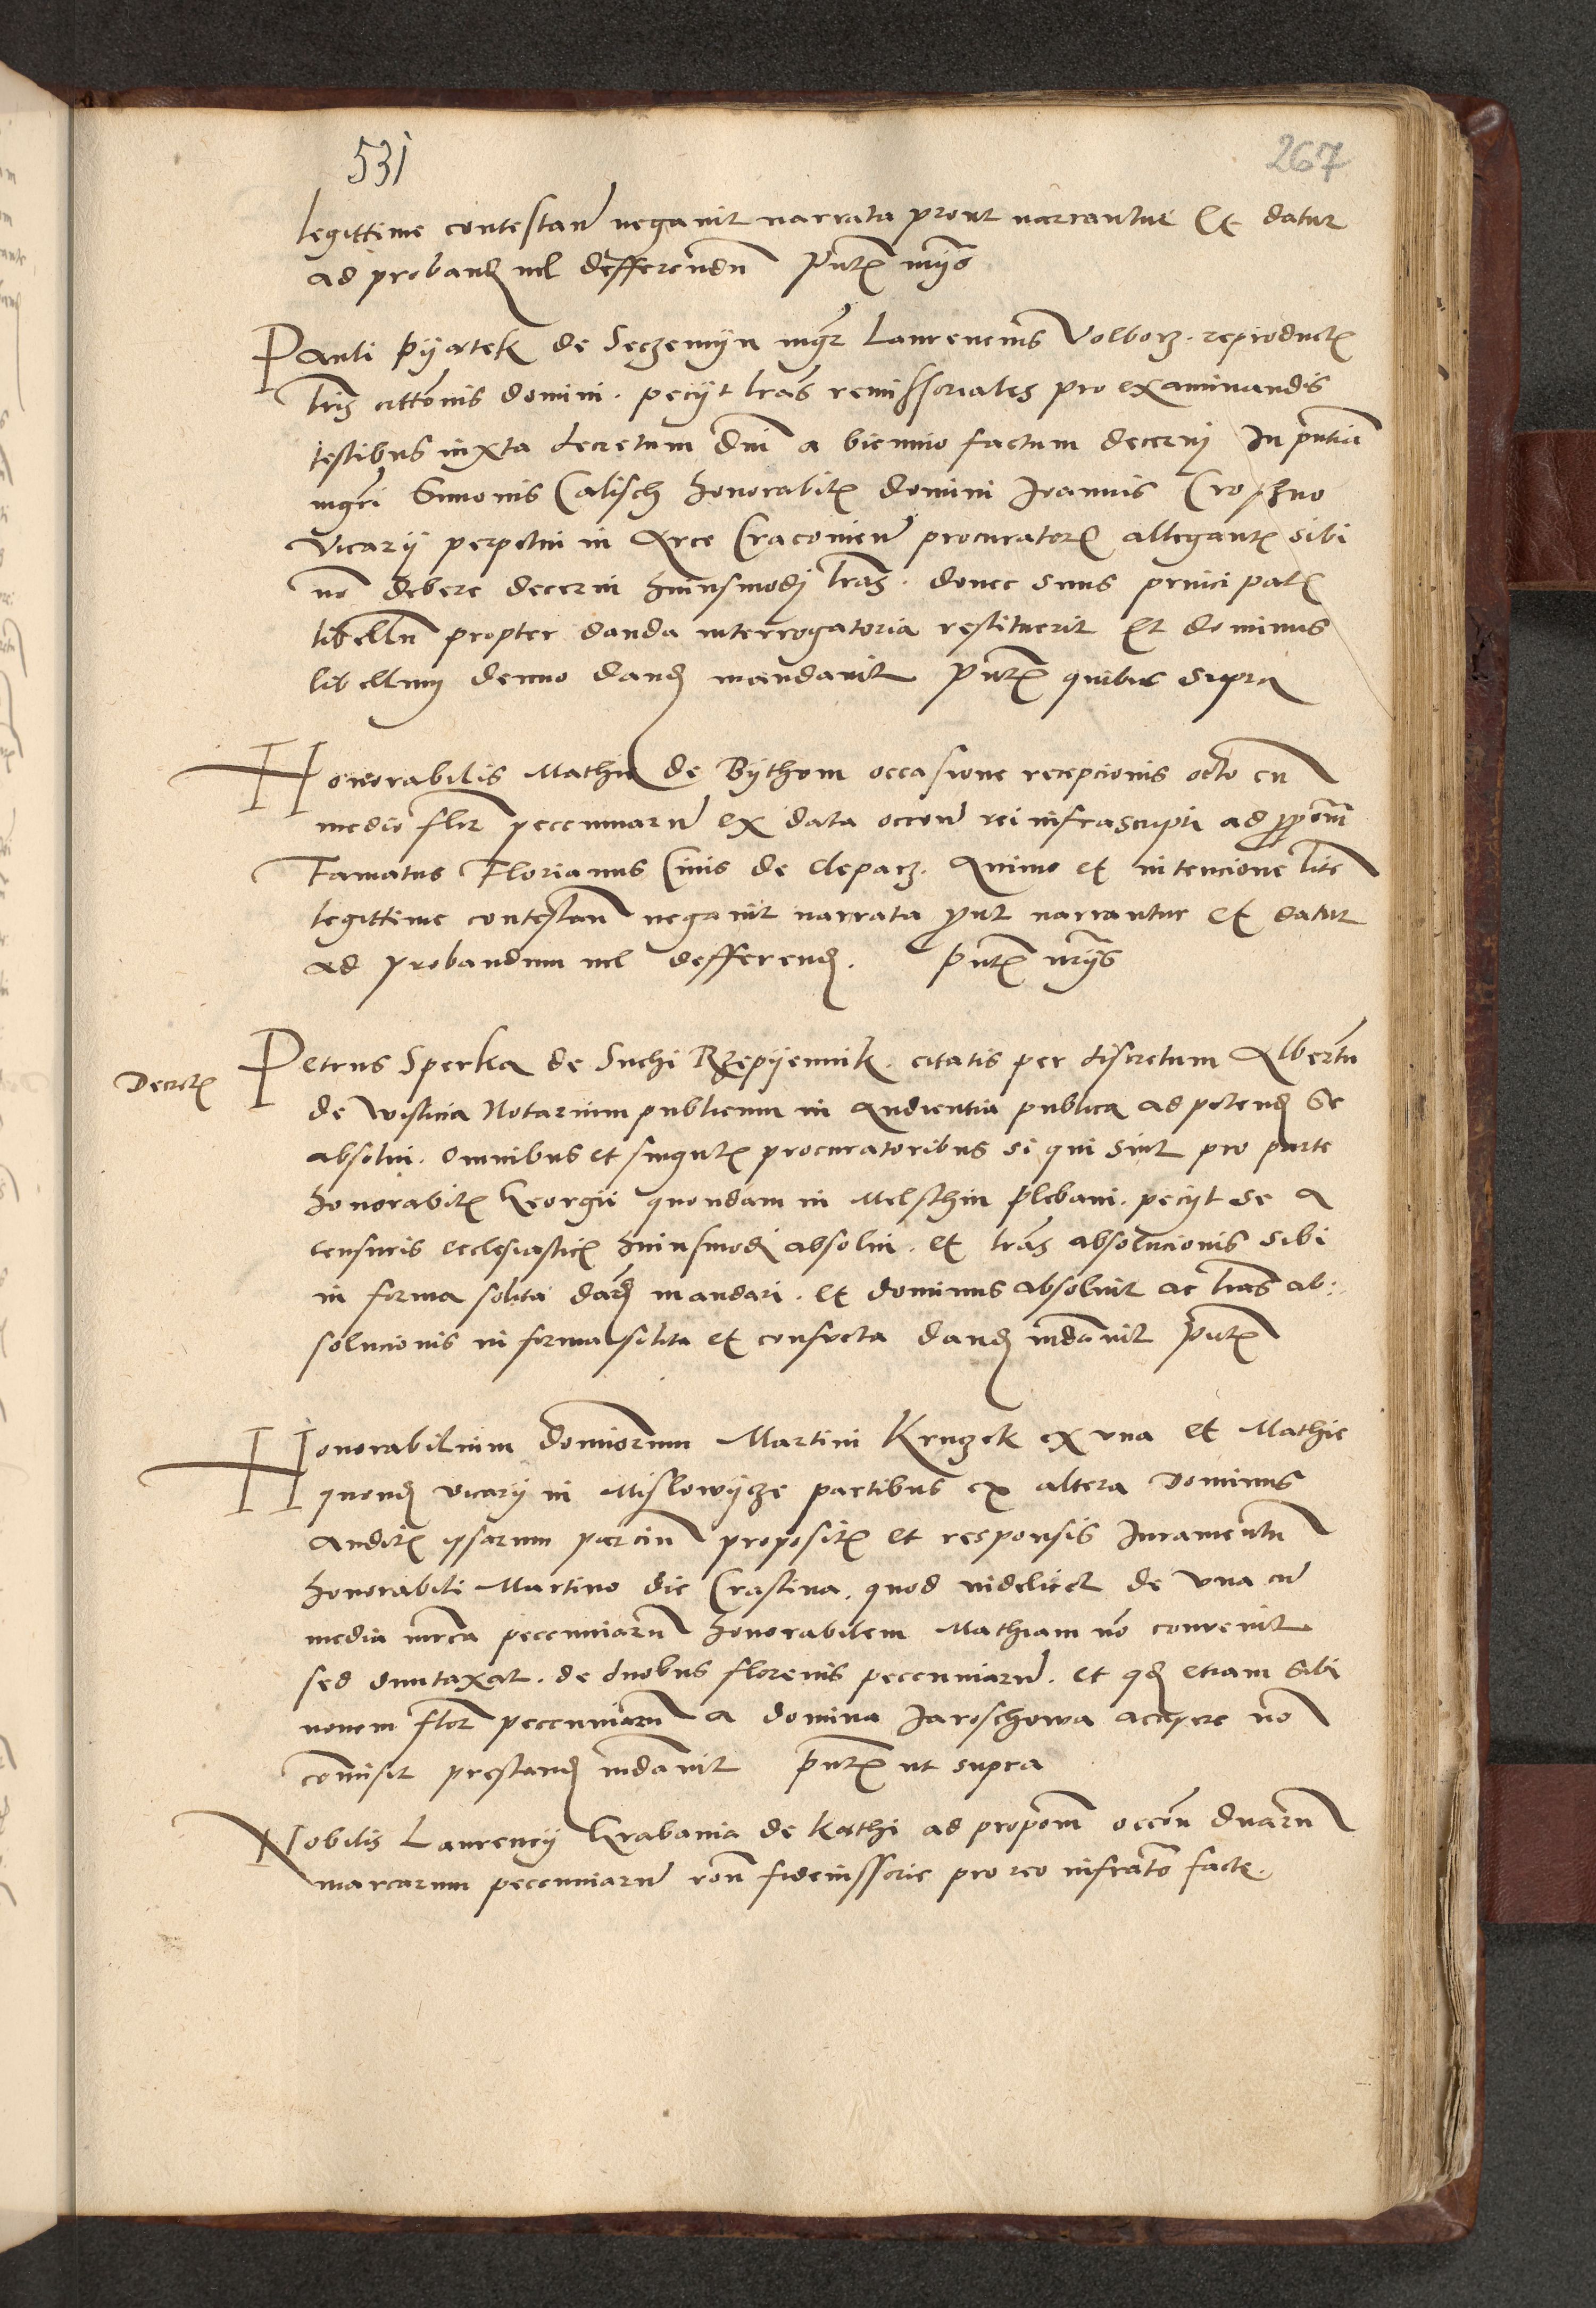 531
267
legittime contestan negavit narrata prout narrantur Et datur
ad proband vel defferendu Pntt
Pauli Pyatek de Seczemyn mgr Laurencius Volborz . reproductt
lris cittonis domini . peciit lras remissoriales pro examinandis
testibus iuxta decretum dni a biennio factum decerni In pntia
mgri Simonis Calisch honorabilt domini Joannis Croszno
vicarii perpetui in Arce Cracovien procurator allegantt sibi
no debere decerni huiusmodi lras . donec suus principalt
libellu propter danda interrogatoria restituerit Et dominus
libellum denuo dand mandavit Pntt quibus supra
Honorabilis Mathie de Bythom occasione recepcionis octo cu
medio flor peccuniaru ex data occone rei infrascripti ad ppom
Famatus Florianus Civis de Clepacz . Animo et intencione lite
legittime contestan negavit narrata prout narrantur et datur
ad probandum vel defferend . Pntt
Decrett
Petrus Sperka de Suchi Rzepyennik . citatis per discretum Albertu
de Wislicia Notarium publicum in Audientia publica ad petend Se
absolvi . omnibus et singult procuratoribus si qui sint pro parte
honorabilt Georgii quondam in Melschin plebani . peciit se a
censuris ecclesiasticis huiusmodi absolvi . et lras absolucionis sibi
in forma solita dand mandari . et dominus absolvit ac lras ab:
solucionis in forma solita et consveta dand mdavit Pntt
Honorabilium dominorum Martini Kruczek ex una et Mathie
quond vicarii in Mislowycze partibus ex altera Dominus
auditt ipsarum parciu propositt et responsis Iuramentu
honorabili Martino die Crastina . quod videlicet de una cu
media mrca peccuniaru honorabilem Mathiam no convenit
sed duntaxat . de duobus florenis peccuniaru . et qd etiam sibi
novem flor peccuniaru a domina Jaroschowa accipere no
comisit prestand mdavit Pntt ut supra
Nobilis Laurencii Grabania de Kathi ad propom occone duaru
marcarum peccuniaru rone fideiussorie pro reo infrato facte .